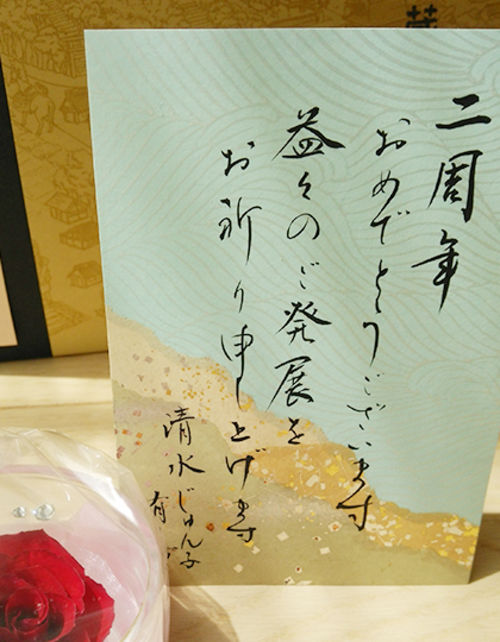 二周年
おめでとうございます
益々のご発展を
お祈り申し上げます
清水じゅん子
有